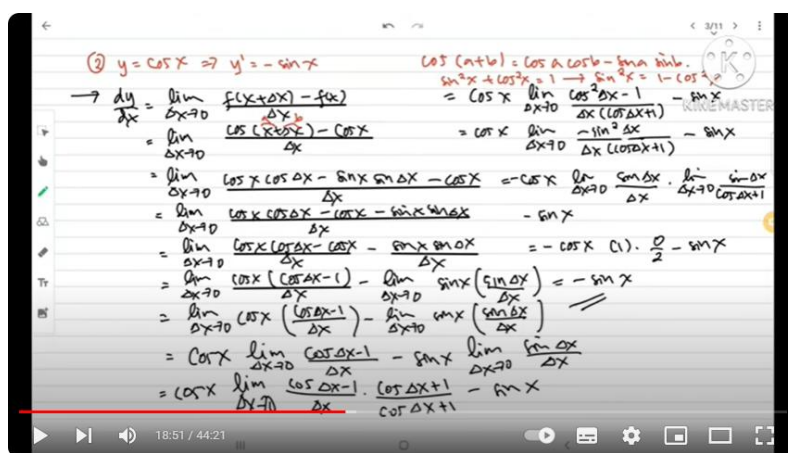 3/11
② y = cos x ⇒ y' = - sin x
cos (a+b) = cos a cos b - sin a sin b.
sin²x + cos²x = 1 → sin²x = 1 - cos²
K
KINEMASTER
→ dy/dx = lim Δx→0 f(x+Δx) - f(x) / Δx
= lim Δx→0 cos (x+Δx) - cos x / Δx
a b
= lim Δx→0 cos x cos Δx - sin x sin Δx - cos x / Δx
= lim Δx→0 cos x cos Δx - cos x - sin x sin Δx / Δx
= lim Δx→0 cos x cos Δx - cos x / Δx - sin x sin Δx / Δx
= lim Δx→0 cos x (cos Δx - 1) / Δx - lim Δx→0 sin x (sin Δx / Δx)
= lim Δx→0 cos x (cos Δx - 1 / Δx) - lim Δx→0 sin x (sin Δx / Δx)
= cos x lim Δx→0 cos Δx - 1 / Δx - sin x lim Δx→0 sin Δx / Δx
= cos x lim Δx→0 cos Δx - 1 / Δx · cos Δx + 1 / cos Δx + 1 - sin x
= cos x lim Δx→0 cos² Δx - 1 / Δx (cos Δx + 1) - sin x
= cos x lim Δx→0 - sin² Δx / Δx (cos Δx + 1) - sin x
= - cos x lim Δx→0 sin Δx / Δx · lim Δx→0 sin Δx / cos Δx + 1
- sin x
= - cos x (1) · 0/2 - sin x
= - sin x
Tr
18:51 / 44:21